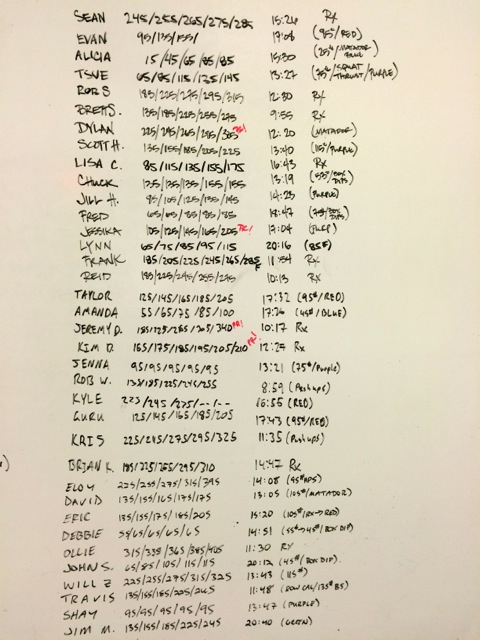 SEAN 245/255/265/275/285 15:26 Rx
EVAN 95/135/155/ 17:08 (95#/RED)
ALICIA 15/45/65/85/85 15:30 (25#/MATADOR
TSUE 65/85/115/135/145 13:27 (75#/SQUAT THRUST/PURPLE)
ROB S 185/225/275/295/315 12:30 Rx
BRETT S. 135/185/225/255/275 9:55 Rx
DYLAN 225/245/265/285/305 PR! 12:20 (MATADOR)
SCOTT H. 135/155/185/205/225 13:40 (115#/PURPLE)
LISA C. 85/115/135/155/175 16:43 Rx
CHUCK 135/135/135/155/155 13:19 BOX DIPS)
JILL H. 85/105/125/135/145 14:23 (PURPLE)
FRED 65/65/85/85/85 18:47 BOX DIPS)
JESSIKA 105/125/145/165/205 PR! 17:04 (PURP)
LYNN 65/75/85/95/115 20:16 (85#)
FRANK 185/205/225/245/265/285 F 11:54 Rx
REID 185/225/245/255/275 10:13 Rx
TAYLOR 125/145/165/185/205 17:32 (95#/RED)
AMANDA 55/65/75/85/100 17:26 (45#/BLUE)
JEREMY D. 185/225/285/305/340 PR! 10:17 Rx
KIM D. 155/175/185/195/205/210 PR! 12:25 Rx
JENNA 95/95/95/95/95 13:21 (75#/Purple)
ROB W. 135/185/225/245/255 8:59 (Pushups)
KYLE 225/245/275/--/-- 16:55 (RED)
GURU 125/145/165/185/205 17:43 (95#/RED)
KRIS 225/245/275/295/325 11:35 (Pushups)
BRIAN K. 185/225/265/295/310 14:47 Rx
ELOY 225/255/275/315/345 14:08 (95#
DAVID 135/155/165/175/175 13:05 (105#/MATADOR)
ERIC 135/155/175/185/205 15:20 (105#/RX→RED)
DEBBIE 55/65/65/65/65 14:51 (55#→45#/BOX DIP)
OLLIE 315/335/365/385/405 11:30 RX
JOHN S. 65/85/105/115/115 20:12 (45#/BOX DIP)
WILL Z 225/255/275/315/325 13:43 (115#)
TRAVIS 135/155/185/225/265 11:48 (ROW CAL/135#
SHAY 95/95/95/95/95 13:47 (PURPLE)
JIM M. 135/155/185/225/245 20:40 (GREEN)